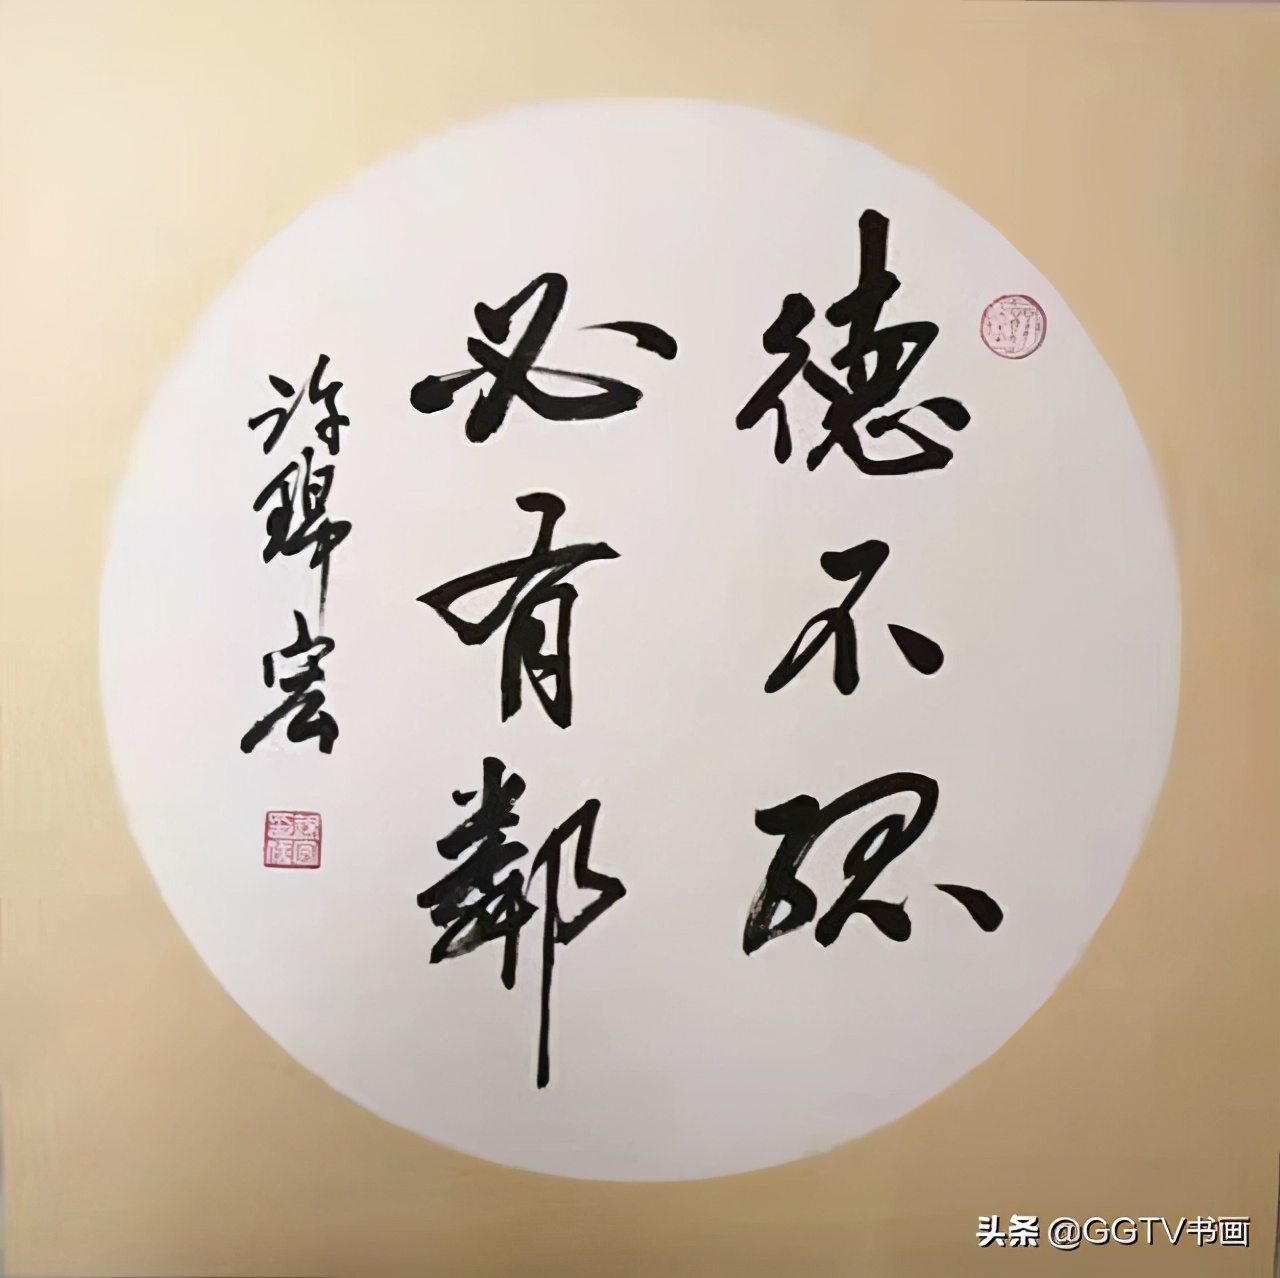 德不孤
必有鄰
许锦宏
头条 @GGTV书画